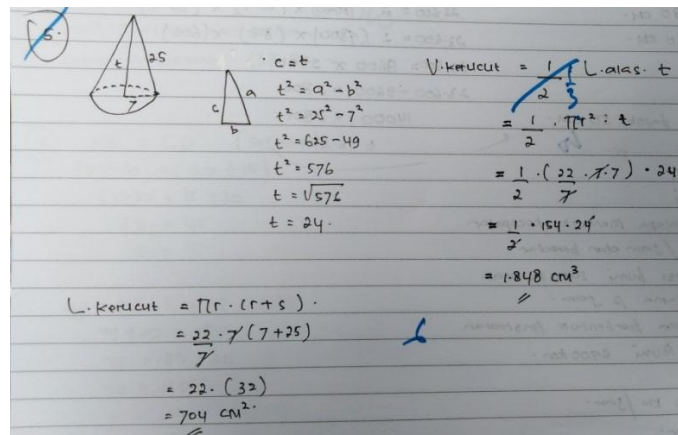 5.
t
25
7
c
a
b
c = t
t² = a² - b²
t² = 25² - 7²
t² = 625 - 49
t² = 576
t = √576
t = 24.
V. kerucut = 1/2 L. alas. t
1/3
= 1/2 . πr² : t
= 1/2 . (22/7 . 7. 7) . 24
= 1/2 . 154 . 24
= 1.848 cm³
L. kerucut = πr . (r + s) .
= 22/7 . 7 (7 + 25)
= 22. (32)
= 704 cm².